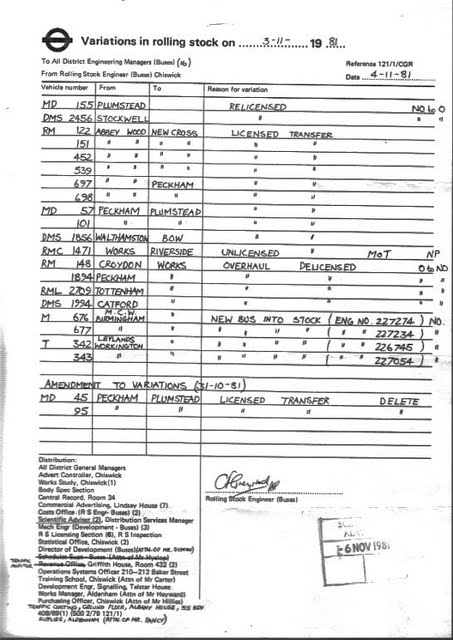 Variations in rolling stock on 3-11- 19 81.
To All District Engineering Managers (Buses) (16)
Reference 121/1/CGR
From Rolling Stock Engineer (Buses) Chiswick
Date 4-11-81
Vehicle number From To Reason for variation
MD 155 PLUMSTEAD RELICENSED NO to O
DMS 2456 STOCKWELL " " "
RM 122 ABBEY WOOD NEW CROSS LICENSED TRANSFER
151 " " " " " "
452 " " " " " "
539 " " " " " "
697 " " PECKHAM " "
698 " " " " "
MD 57 PECKHAM PLUMSTEAD " "
101 " " " "
DMS 1856 WALTHAMSTON BOW " "
RMC 1471 WORKS RIVERSIDE UNLICENSED MOT NP
RM 148 CROYDON WORKS OVERHAUL DELICENSED O to NO
1894 PECKHAM " " " "
RML 2709 TOTTENHAM " " " "
DMS 1994 CATFORD " " " "
M 676 M.C.W. BIRMINGHAM " NEW BUS INTO STOCK (ENG NO. 227274) NO.
677 " " " " " " ( " " 227234) "
T 342 LEYLANDS WORKINGTON " " " " " ( " " 226745) "
343 " " " " " " ( " " 227054) "
AMENDMENT TO VARIATIONS (31-10-81)
MD 45 PECKHAM PLUMSTEAD LICENSED TRANSFER DELETE
95 " " " " "
Distribution:
All District General Managers
Advert Controller, Chiswick
Works Study, Chiswick(1)
Body Spec Section
Central Record, Room 34
Commercial Advertising, Lindsay House (7)
Costs Office (R S Engr- Buses) (2)
Scientific Adviser (2), Distribution Services Manager
Mech Engr (Development - Buses) (3)
R S Licensing Section (6), R S Inspection
Statistical Office, Chiswick (2)
Director of Development (Buses)
Schedules Supt - Buses (Attn of Mr Hyslop)
TRAFFIC AUDITOR Revenue Office, Griffith House, Room 432 (2)
Operations Systems Officer 210-212 Baker Street
Training School, Chiswick (Attn of Mr Carter)
Development Engr, Signalling, Telstar House
Works Manager, Aldenham (Attn of Mr Hayward)
Purchasing Officer, Chiswick (Attn of Mr Hillies)
TRAFFIC COSTING, GROUND FLOOR, ALBANY HOUSE, 55 BDY
408/69(1) (500 2/79 121/1)
SUPPLIES, ALDENHAM (ATTN. OF MR. DANCY)
Rolling Stock Engineer (Buses)
-6 NOV 1981